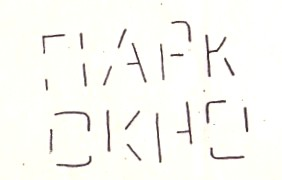 ПАРК
ОКНО